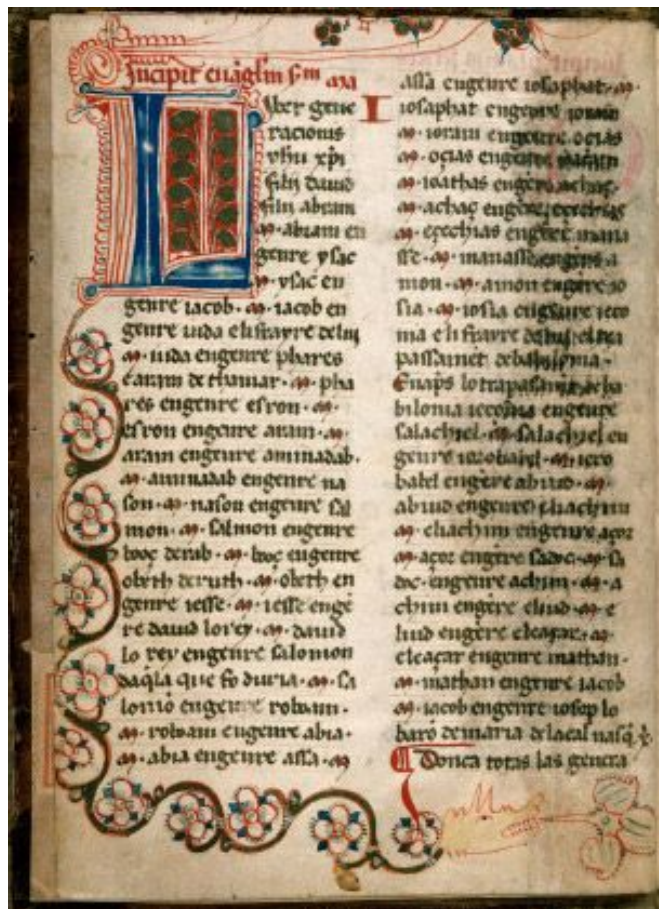 Incipit euãglm sm
Liber gene
racionis
yhu xpi
filii dauid
filii abram
abram en
genre ysac
ysac en
genre iacob · iacob en
genre iuda elsfrayre
iuda engenre phares
ezaram de thamar · pha
res engenre esron
esron engenre aram
aram engenre aminadab
aminadab engenre na
son · nason engenre sal
mon · salmon engenre
booç derab · booç engenre
obeth deruth · obeth en
genre iesse · iesse engē
re dauid lo rey · dauid
lo rey engenre salomon
daq̃la que fo duria · sa
lomo engenre roboam
roboam engenre abia
abia engenre assa
I
assa engenre iosaphat
iosaphat engenre ioram
ioram engenre oçias
oçias engenre
ioathas engēre achaç
achaç engenre ezechias
ezechias engenre mana
sse · manasse engenre a
mon · amon engēre io
sia · iosia engenre ieco
nia elsfrayre
passamēt de babilonia
Enaps lo trapasamēt de ba
bilonia ieconia engenre
salachiel · salachiel en
genre iorobabel · ioro
babel engēre abiud
abiud engenre eliachim
eliachim engenre açor
açor engēre sadoc · sa
doc · engenre achim · a
chim engēre eliud · e
liud engēre eleaçar
eleaçar engenre mathan
mathan engenre iacob
iacob engenre iosep lo
baro de maria de la cal nasq̃
Donca totas las genera